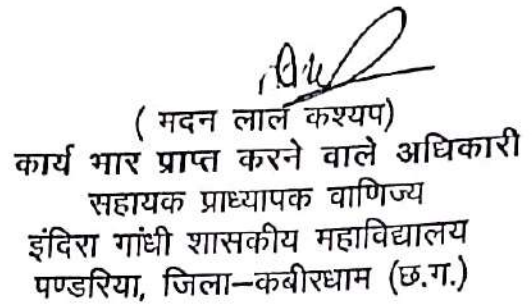 ( मदन लाल कश्यप)
कार्य भार प्राप्त करने वाले अधिकारी
सहायक प्राध्यापक वाणिज्य
इंदिरा गांधी शासकीय महाविद्यालय
पण्डरिया, जिला–कबीरधाम (छ.ग.)